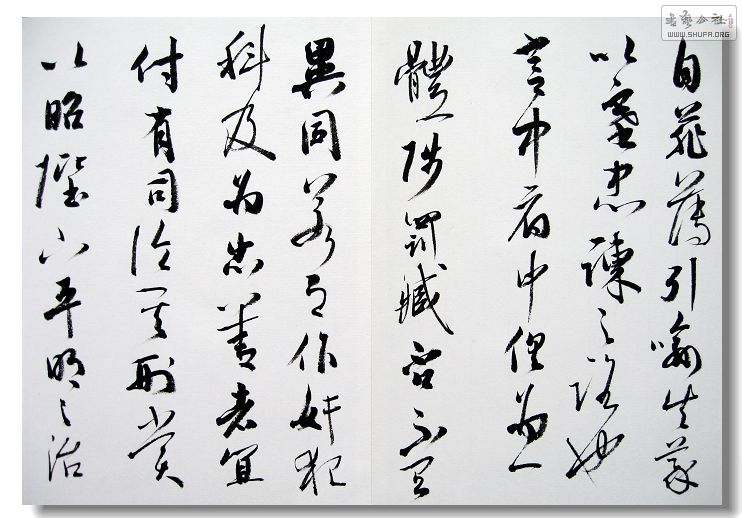 自菲薄引喻失義
以塞忠諫之路也
宮中府中俱為一
體陟罰臧否不宜
異同若有作奸犯
科及為忠善者宜
付有司論其刑賞
以昭陛下平明之治
書藝公社
WWW.SHUFA.ORG